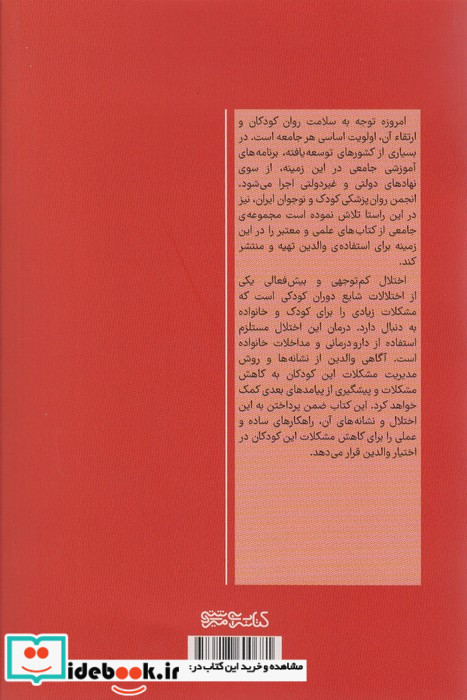 امروزه توجه به سلامت روان کودکان و
ارتقاء آن، اولویت اساسی هر جامعه است. در
بسیاری از کشورهای توسعه‌یافته، برنامه‌های
آموزشی جامعی در این زمینه، از سوی
نهادهای دولتی و غیردولتی اجرا می‌شود.
انجمن روان‌پزشکی کودک و نوجوان ایران، نیز
در این راستا تلاش نموده است مجموعه‌ی
جامعی از کتاب‌های علمی و معتبر را در این
زمینه برای استفاده‌ی والدین تهیه و منتشر
کند.
اختلال کم‌توجهی و بیش‌فعالی یکی
از اختلالات شایع دوران کودکی است که
مشکلات زیادی را برای کودک و خانواده
به دنبال دارد. درمان این اختلال مستلزم
استفاده از دارودرمانی و مداخلات خانواده
است. آگاهی والدین از نشانه‌ها و روش
مدیریت مشکلات این کودکان به کاهش
مشکلات و پیشگیری از پیامدهای بعدی کمک
خواهد کرد. این کتاب ضمن پرداختن به این
اختلال و نشانه‌های آن، راهکارهای ساده و
عملی را برای کاهش مشکلات این کودکان در
اختیار والدین قرار می‌دهد.
مشاهده و خرید این کتاب در:
idebook.ir